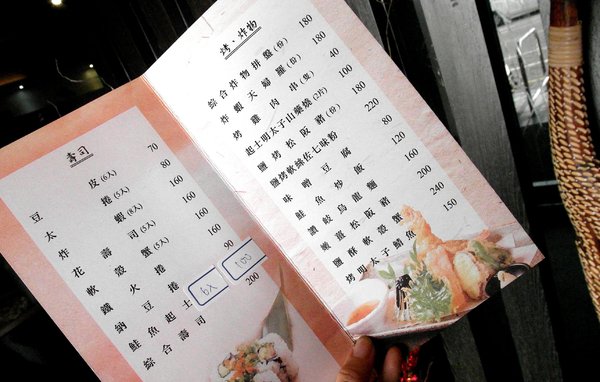 壽司
豆皮(6入) 70
太捲(5入) 80
炸蝦(8入) 160
花壽司(5入) 160
軟殼蟹(5入) 160
鐵火捲 160
納豆捲 90
鮭魚起士 6入 100
綜合壽司 200
烤‧炸物
綜合炸物拼盤(份) 180
炸蝦天婦羅(份) 180
烤雞肉串(隻) 40
起士明太子山藥燒(2片) 100
鹽烤松阪豬(份) 180
鹽烤軟絲佐七味粉 220
味噌豆腐 80
鮭魚炒飯 120
讚岐烏龍麵 160
嫩蔬松阪豬 200
鹽酥軟殼蟹 240
烤明太子鯖魚 150